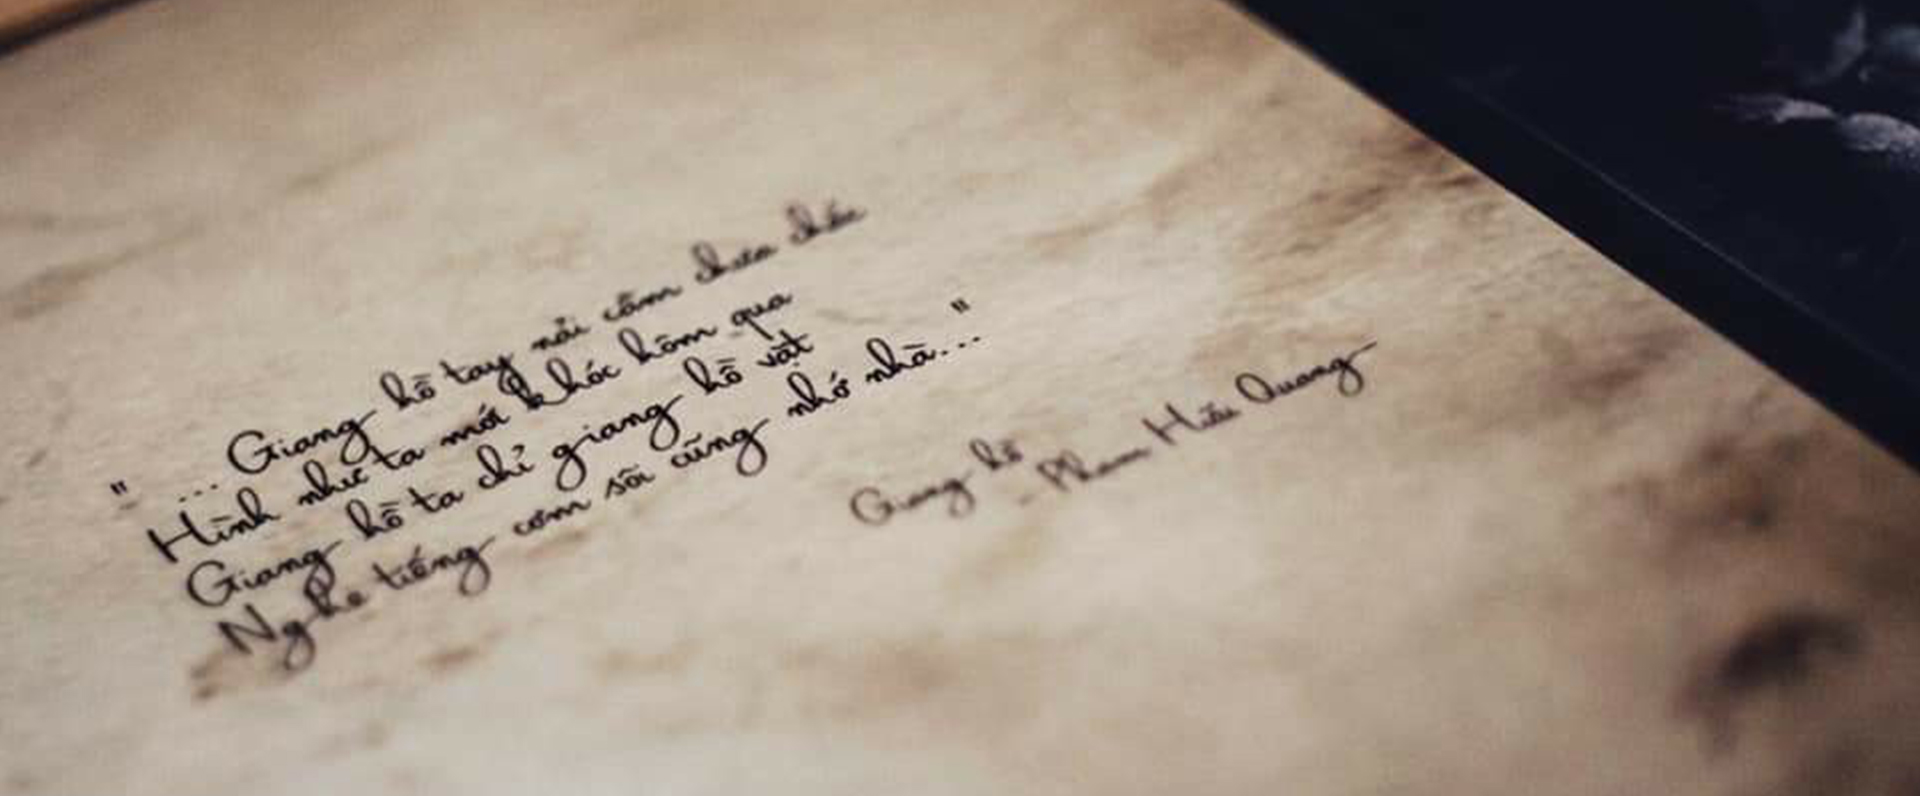 "...Giang hồ tay nải cầm chưa chắc
Hình như ta mới khóc hôm qua
Giang hồ ta chỉ giang hồ vặt
Nghe tiếng cơm sôi cũng nhớ nhà..."
Giang hồ
- Phạm Hữu Quang